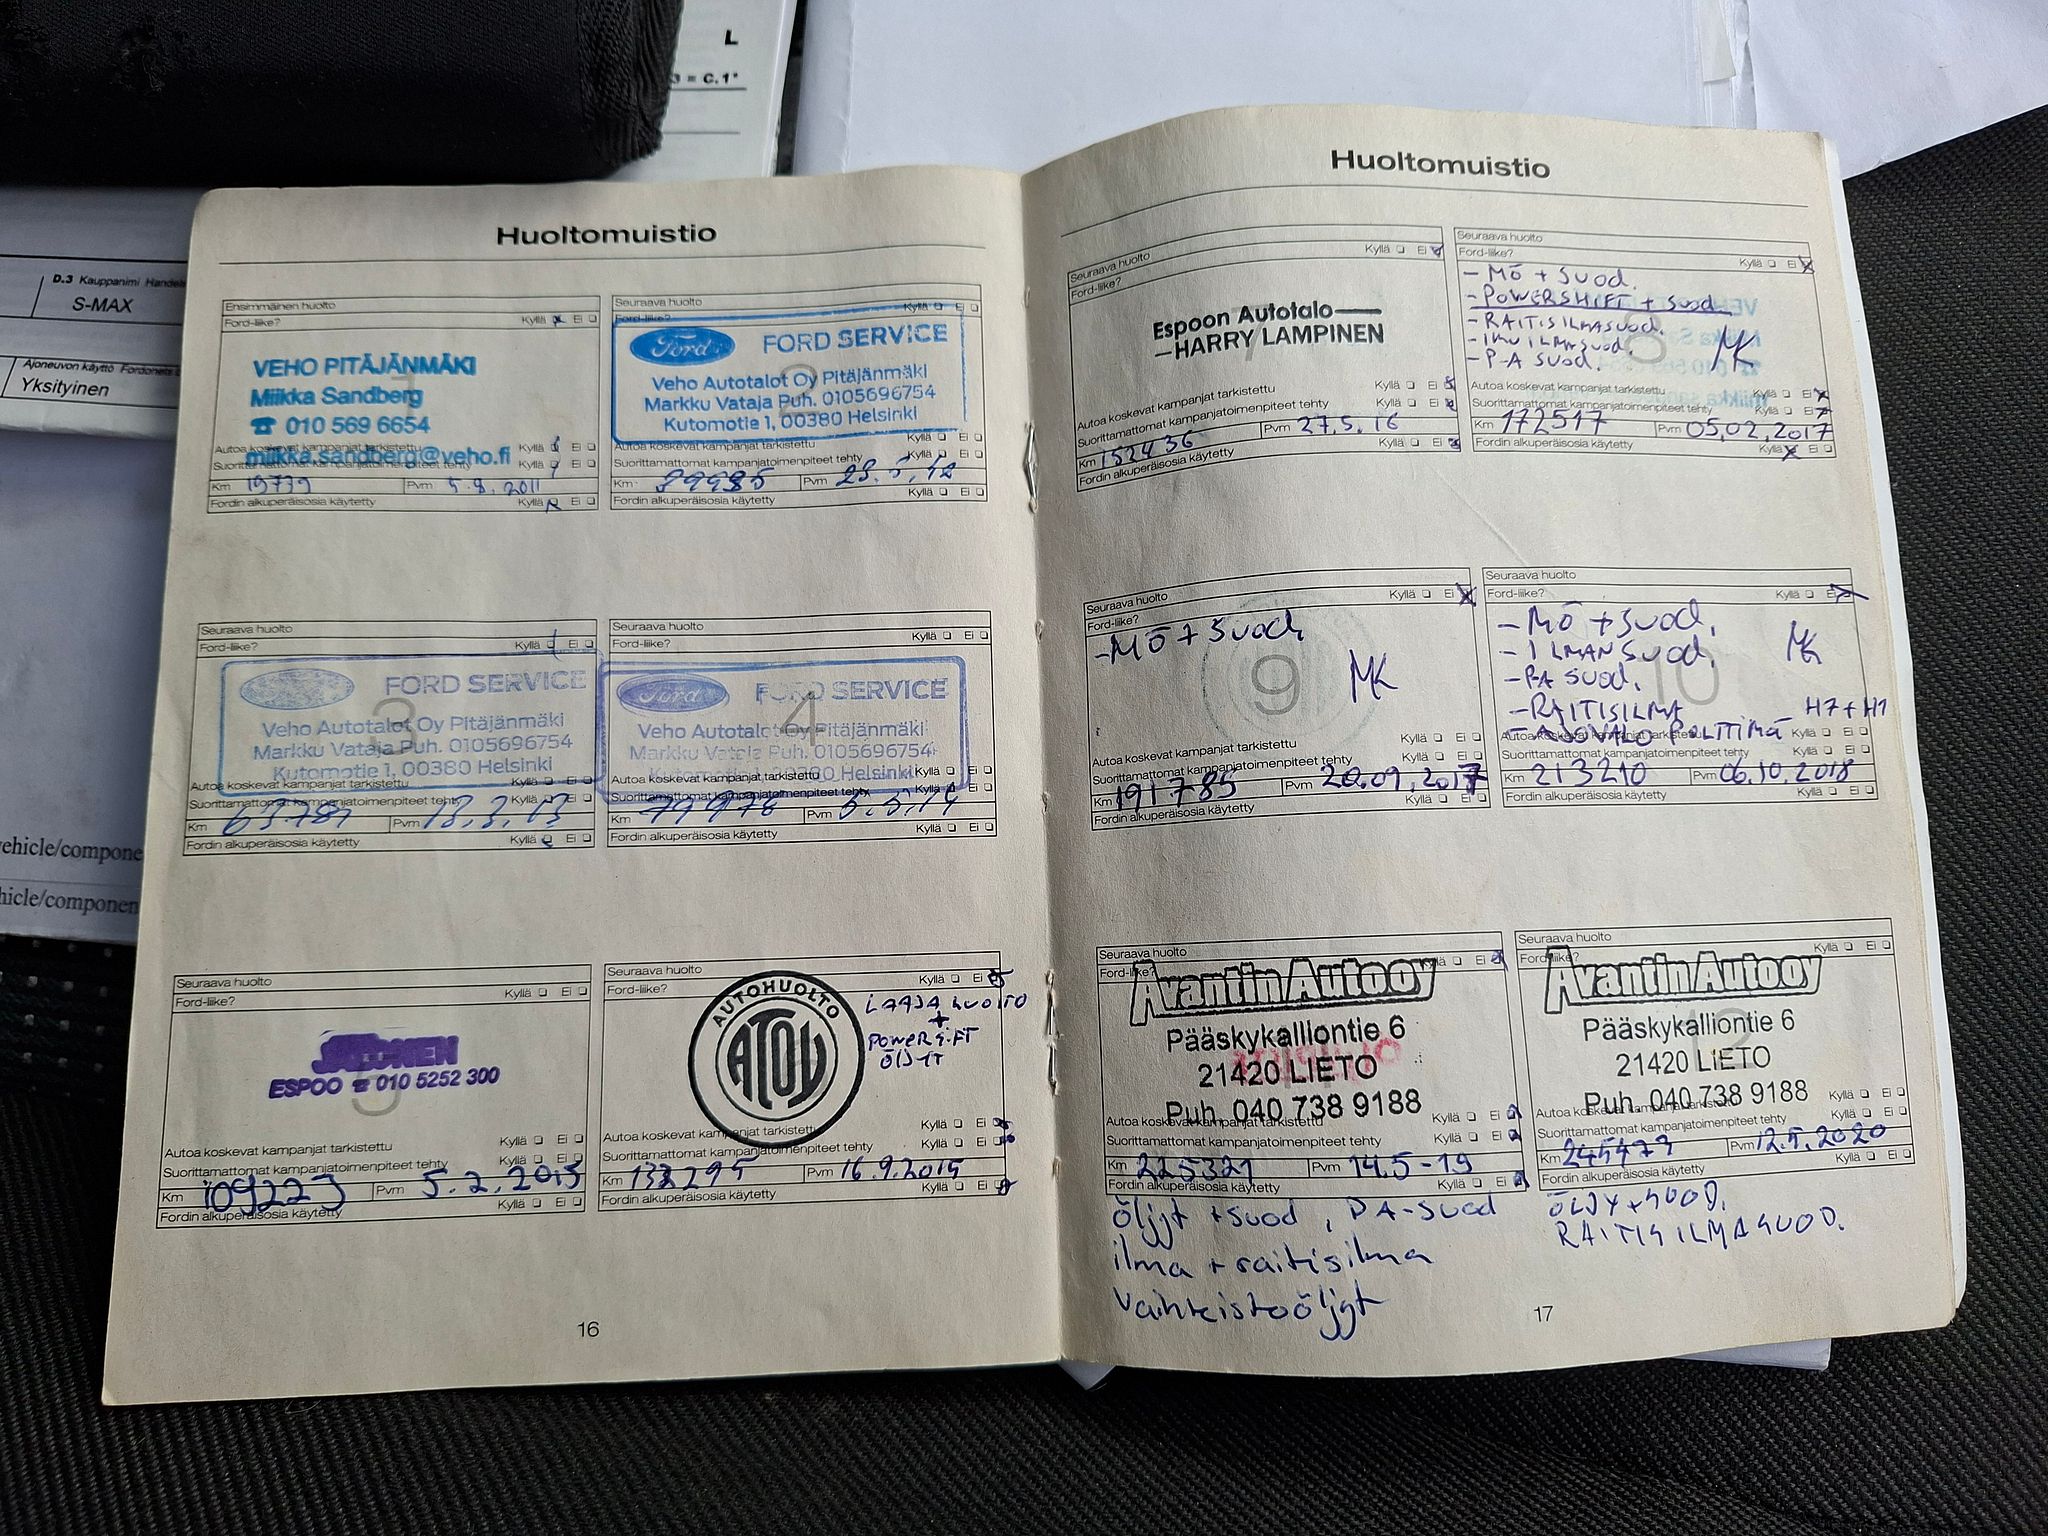 L
3 = C.1*
D.3 Kauppanimi
S-MAX
Ajoneuvon käyttö
Yksityinen
ehicle/compone
hicle/componen
Huoltomuistio
Ensimmäinen huolto
Ford-liike? Kyllä Ei
VEHO PITÄJÄNMÄKI
Miikka Sandberg
☎ 010 569 6654
miikka.sandberg@veho.fi
Autoa koskevat kampanjat tarkistettu
Suorittamattomat kampanjatoimenpiteet tehty
Km 19779 Pvm 5.8.2011
Fordin alkuperäisosia käytetty Kyllä Ei
Seuraava huolto
Ford-liike? Kyllä Ei
Ford FORD SERVICE
Veho Autotalot Oy Pitäjänmäki
Markku Vataja Puh. 0105696754
Kutomotie 1, 00380 Helsinki
Autoa koskevat kampanjat tarkistettu Kyllä Ei
Suorittamattomat kampanjatoimenpiteet tehty Kyllä Ei
Km Pvm
Fordin alkuperäisosia käytetty Kyllä Ei
Seuraava huolto
Ford-liike? Kyllä Ei
3
FORD SERVICE
Veho Autotalot Oy Pitäjänmäki
Markku Vataja Puh. 0105696754
Kutomotie 1, 00380 Helsinki
Autoa koskevat kampanjat tarkistettu Kyllä Ei
Suorittamattomat kampanjatoimenpiteet tehty Kyllä Ei
Km Pvm 13.3.13
Fordin alkuperäisosia käytetty Kyllä Ei
Seuraava huolto
Ford-liike? Kyllä Ei
4
Ford FORD SERVICE
Veho Autotalot Oy Pitäjänmäki
Markku Vataja Puh. 0105696754
Kutomotie 1, 00380 Helsinki
Autoa koskevat kampanjat tarkistettu Kyllä Ei
Suorittamattomat kampanjatoimenpiteet tehty Kyllä Ei
Km Pvm
Fordin alkuperäisosia käytetty Kyllä Ei
Seuraava huolto
Ford-liike? Kyllä Ei
ESPOO ☎ 010 5252 300
5
Autoa koskevat kampanjat tarkistettu Kyllä Ei
Suorittamattomat kampanjatoimenpiteet tehty Kyllä Ei
Km 109223 Pvm 5.2.2015
Fordin alkuperäisosia käytetty Kyllä Ei
Seuraava huolto
Ford-liike? Kyllä Ei
AUTOHUOLTO
ATOY
LAAJA HUOLTO
+
POWERSIFT
ÖLJYT
Autoa koskevat kampanjat tarkistettu Kyllä Ei
Suorittamattomat kampanjatoimenpiteet tehty Kyllä Ei
Km 132295 Pvm 16.9.2015
Fordin alkuperäisosia käytetty Kyllä Ei
16
Huoltomuistio
Seuraava huolto
Ford-liike? Kyllä Ei
Espoon Autotalo
HARRY LAMPINEN
Autoa koskevat kampanjat tarkistettu Kyllä Ei
Suorittamattomat kampanjatoimenpiteet tehty Kyllä Ei
Km 152436 Pvm 27.5.16
Fordin alkuperäisosia käytetty Kyllä Ei
Seuraava huolto
Ford-liike? Kyllä Ei
- MÖ + SUOD.
- POWERSHIFT + SUOD
- RAITISILMASUOD.
- IMUILMASUOD.
- P-A SUOD.
MK
8
Autoa koskevat kampanjat tarkistettu Kyllä Ei
Suorittamattomat kampanjatoimenpiteet tehty Kyllä Ei
Km 172517 Pvm 05.02.2017
Fordin alkuperäisosia käytetty Kyllä Ei
Seuraava huolto
Ford-liike? Kyllä Ei
- MÖ + SUOD.
MK
9
Autoa koskevat kampanjat tarkistettu Kyllä Ei
Suorittamattomat kampanjatoimenpiteet tehty Kyllä Ei
Km 191785 Pvm 20.09.2017
Fordin alkuperäisosia käytetty Kyllä Ei
Seuraava huolto
Ford-liike? Kyllä Ei
- MÖ + SUOD.
- ILMANSUOD.
- P-A SUOD.
- RAITISILMA
- AJOVALO POLTTIMA H7 + H1
MK
10
Autoa koskevat kampanjat tarkistettu Kyllä Ei
Suorittamattomat kampanjatoimenpiteet tehty Kyllä Ei
Km 213210 Pvm 06.10.2018
Fordin alkuperäisosia käytetty Kyllä Ei
Seuraava huolto
Ford-liike? Kyllä Ei
Avantin Auto oy
Pääskykalliontie 6
21420 LIETO
Puh. 040 738 9188
Autoa koskevat kampanjat tarkistettu Kyllä Ei
Suorittamattomat kampanjatoimenpiteet tehty Kyllä Ei
Km 225321 Pvm 14.5-19
Fordin alkuperäisosia käytetty Kyllä Ei
öljyt + suod, PA-suod
ilma + raitisilma
vaihteistoöljyt
Seuraava huolto
Ford-liike? Kyllä Ei
Avantin Auto oy
Pääskykalliontie 6
21420 LIETO
Puh. 040 738 9188
12
Autoa koskevat kampanjat tarkistettu Kyllä Ei
Suorittamattomat kampanjatoimenpiteet tehty Kyllä Ei
Km 245473 Pvm 12.5.2020
Fordin alkuperäisosia käytetty Kyllä Ei
ÖLJY + SUOD.
RAITISILMASUOD.
17